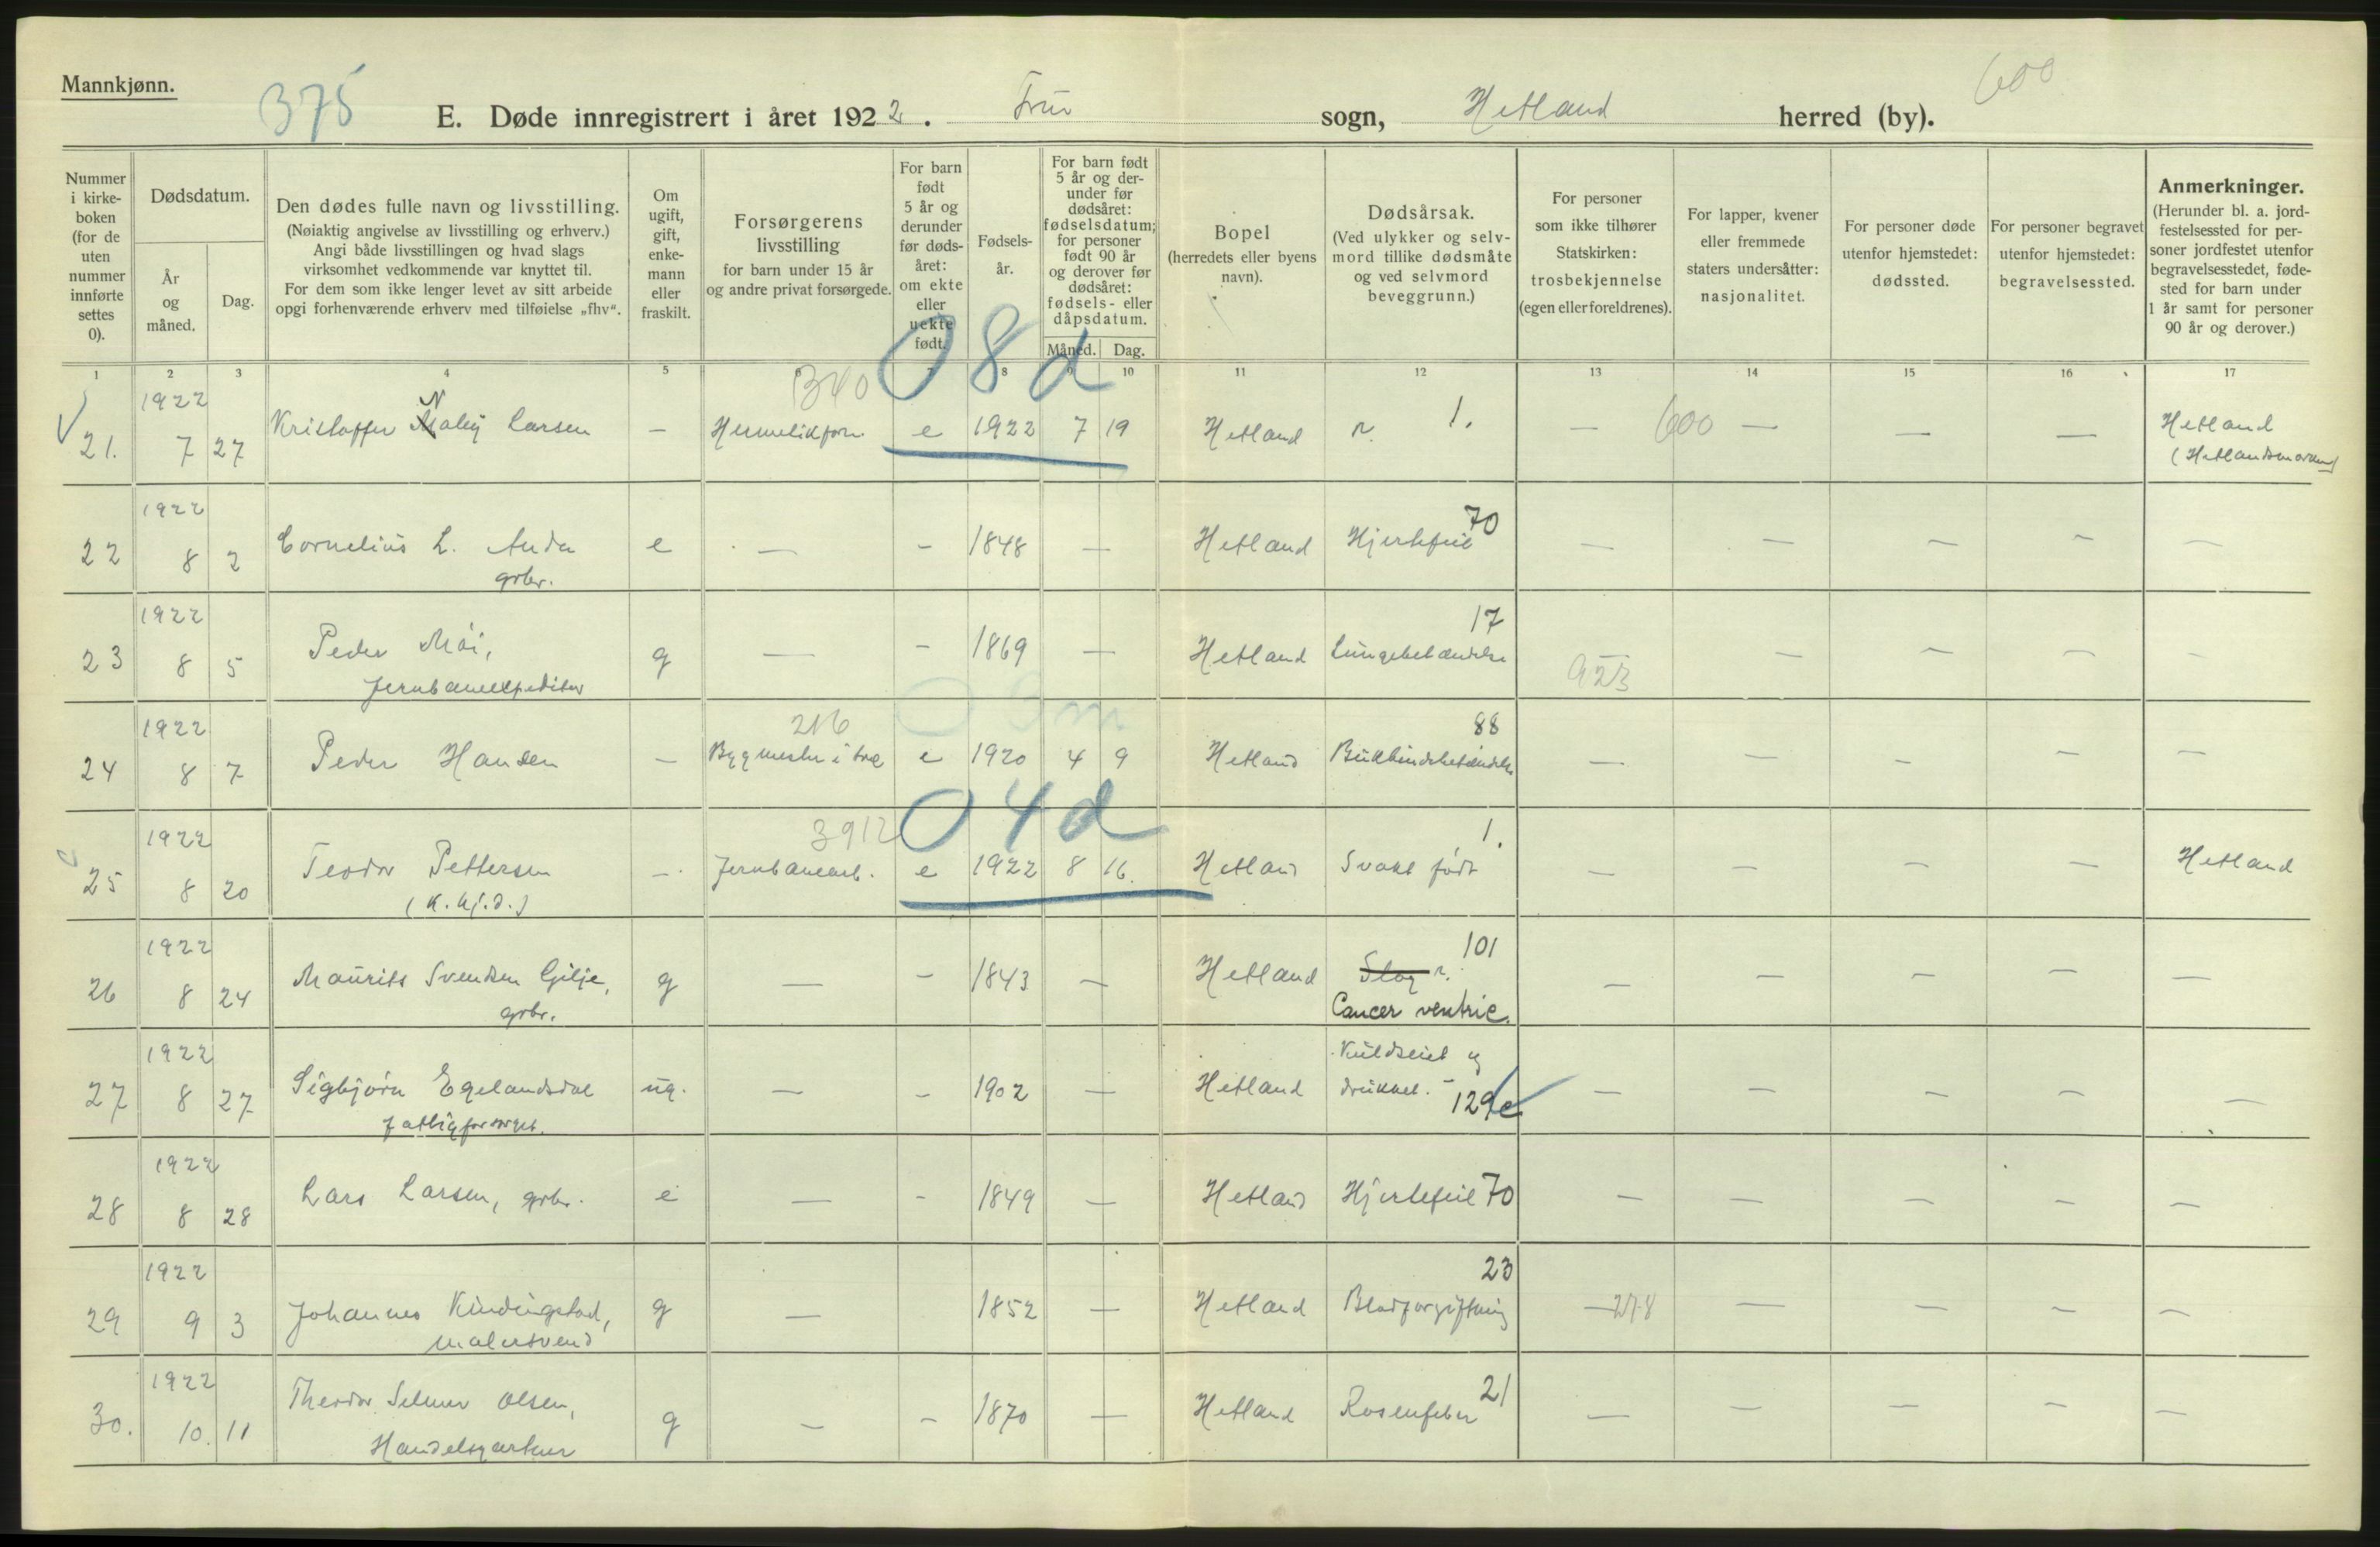 Mannkjønn.
375
E. Døde innregistrert i året 1922. Frue sogn, Hetland herred (by).
600
Nummer i kirkeboken (for de uten nummer innførte settes 0).
Dødsdatum.
År og måned.
Dag.
Den dødes fulle navn og livsstilling.
(Nøiaktig angivelse av livsstilling og erhverv.)
Angi både livsstillingen og hvad slags
virksomhet vedkommende var knyttet til.
For dem som ikke lenger levet av sitt arbeide
opgi forhenværende erhverv med tilføielse „fhv“.
Om ugift, gift, enkemann eller fraskilt.
Forsørgerens
livsstilling
for barn under 15 år
og andre privat forsørgede.
For barn født 5 år og derunder før dødsåret: om ekte eller uekte født.
Fødselsår.
For barn født 5 år og derunder før dødsåret: fødselsdatum; for personer født 90 år og derover før dødsåret: fødsels- eller dåpsdatum.
Måned.
Dag.
Bopel
(herredets eller byens navn).
Dødsårsak.
(Ved ulykker og selvmord tillike dødsmåte og ved selvmord beveggrunn.)
For personer som ikke tilhører Statskirken: trosbekjennelse (egen eller foreldrenes).
For lapper, kvener eller fremmede staters undersåtter: nasjonalitet.
For personer døde utenfor hjemstedet: dødssted.
For personer begravet utenfor hjemstedet: begravelsessted.
Anmerkninger.
(Herunder bl. a. jordfestelsessted for personer jordfestet utenfor begravelsesstedet, fødested for barn under 1 år samt for personer 90 år og derover.)
1 2 3 4 5 6 7 8 9 10 11 12 13 14 15 16 17
340 08d
21. 1922 7 27 Kristoffer Larsen — e 1922 7 19 Hetland 1. — 600 — — — Hetland
22 1922 8 2 Cornelius L. Auda e — — 1848 — Hetland Hjertefeil 70 — — — — —
grbr.
23 1922 8 5 Peder Moi, g — — 1869 — Hetland Lungebetændelse 17 — 923 — — — —
Jernbaneexpeditør
216
24 1922 8 7 Peder Hansen — Bygmester i træ e 1920 4 9 Hetland Bukhindebetændelse 88 — — — — —
3912 04d
25 1922 8 20 Teodor Pettersen — Jernbanearb. e 1922 8 16. Hetland Svakt født 1. — — — — Hetland
(K. hj.d.)
26 1922 8 24 Maurits Svendsen Gilje, g — — 1843 — Hetland Slag 101 — — — — —
grbr.
Cancer ventric.
27 1922 8 27 Sigbjørn Egelandsdal ug. — — 1902 — Hetland Kuldseilt og
fattigforsørget.
druknet. — 129 e — — — — —
28 1922 8 28 Lars Larsen, grbr. e — — 1849 — Hetland Hjertefeil 70 — — — — —
29 1922 9 3 Johannes Kindingstad, g — 1852 — Hetland Blodforgiftning 23 — 278 — — — —
malersvend
30. 1922 10. 11 Theodor Selmer Olsen, g — — 1870 — Hetland Rosenfeber 21 — — — — —
Handelsgartner